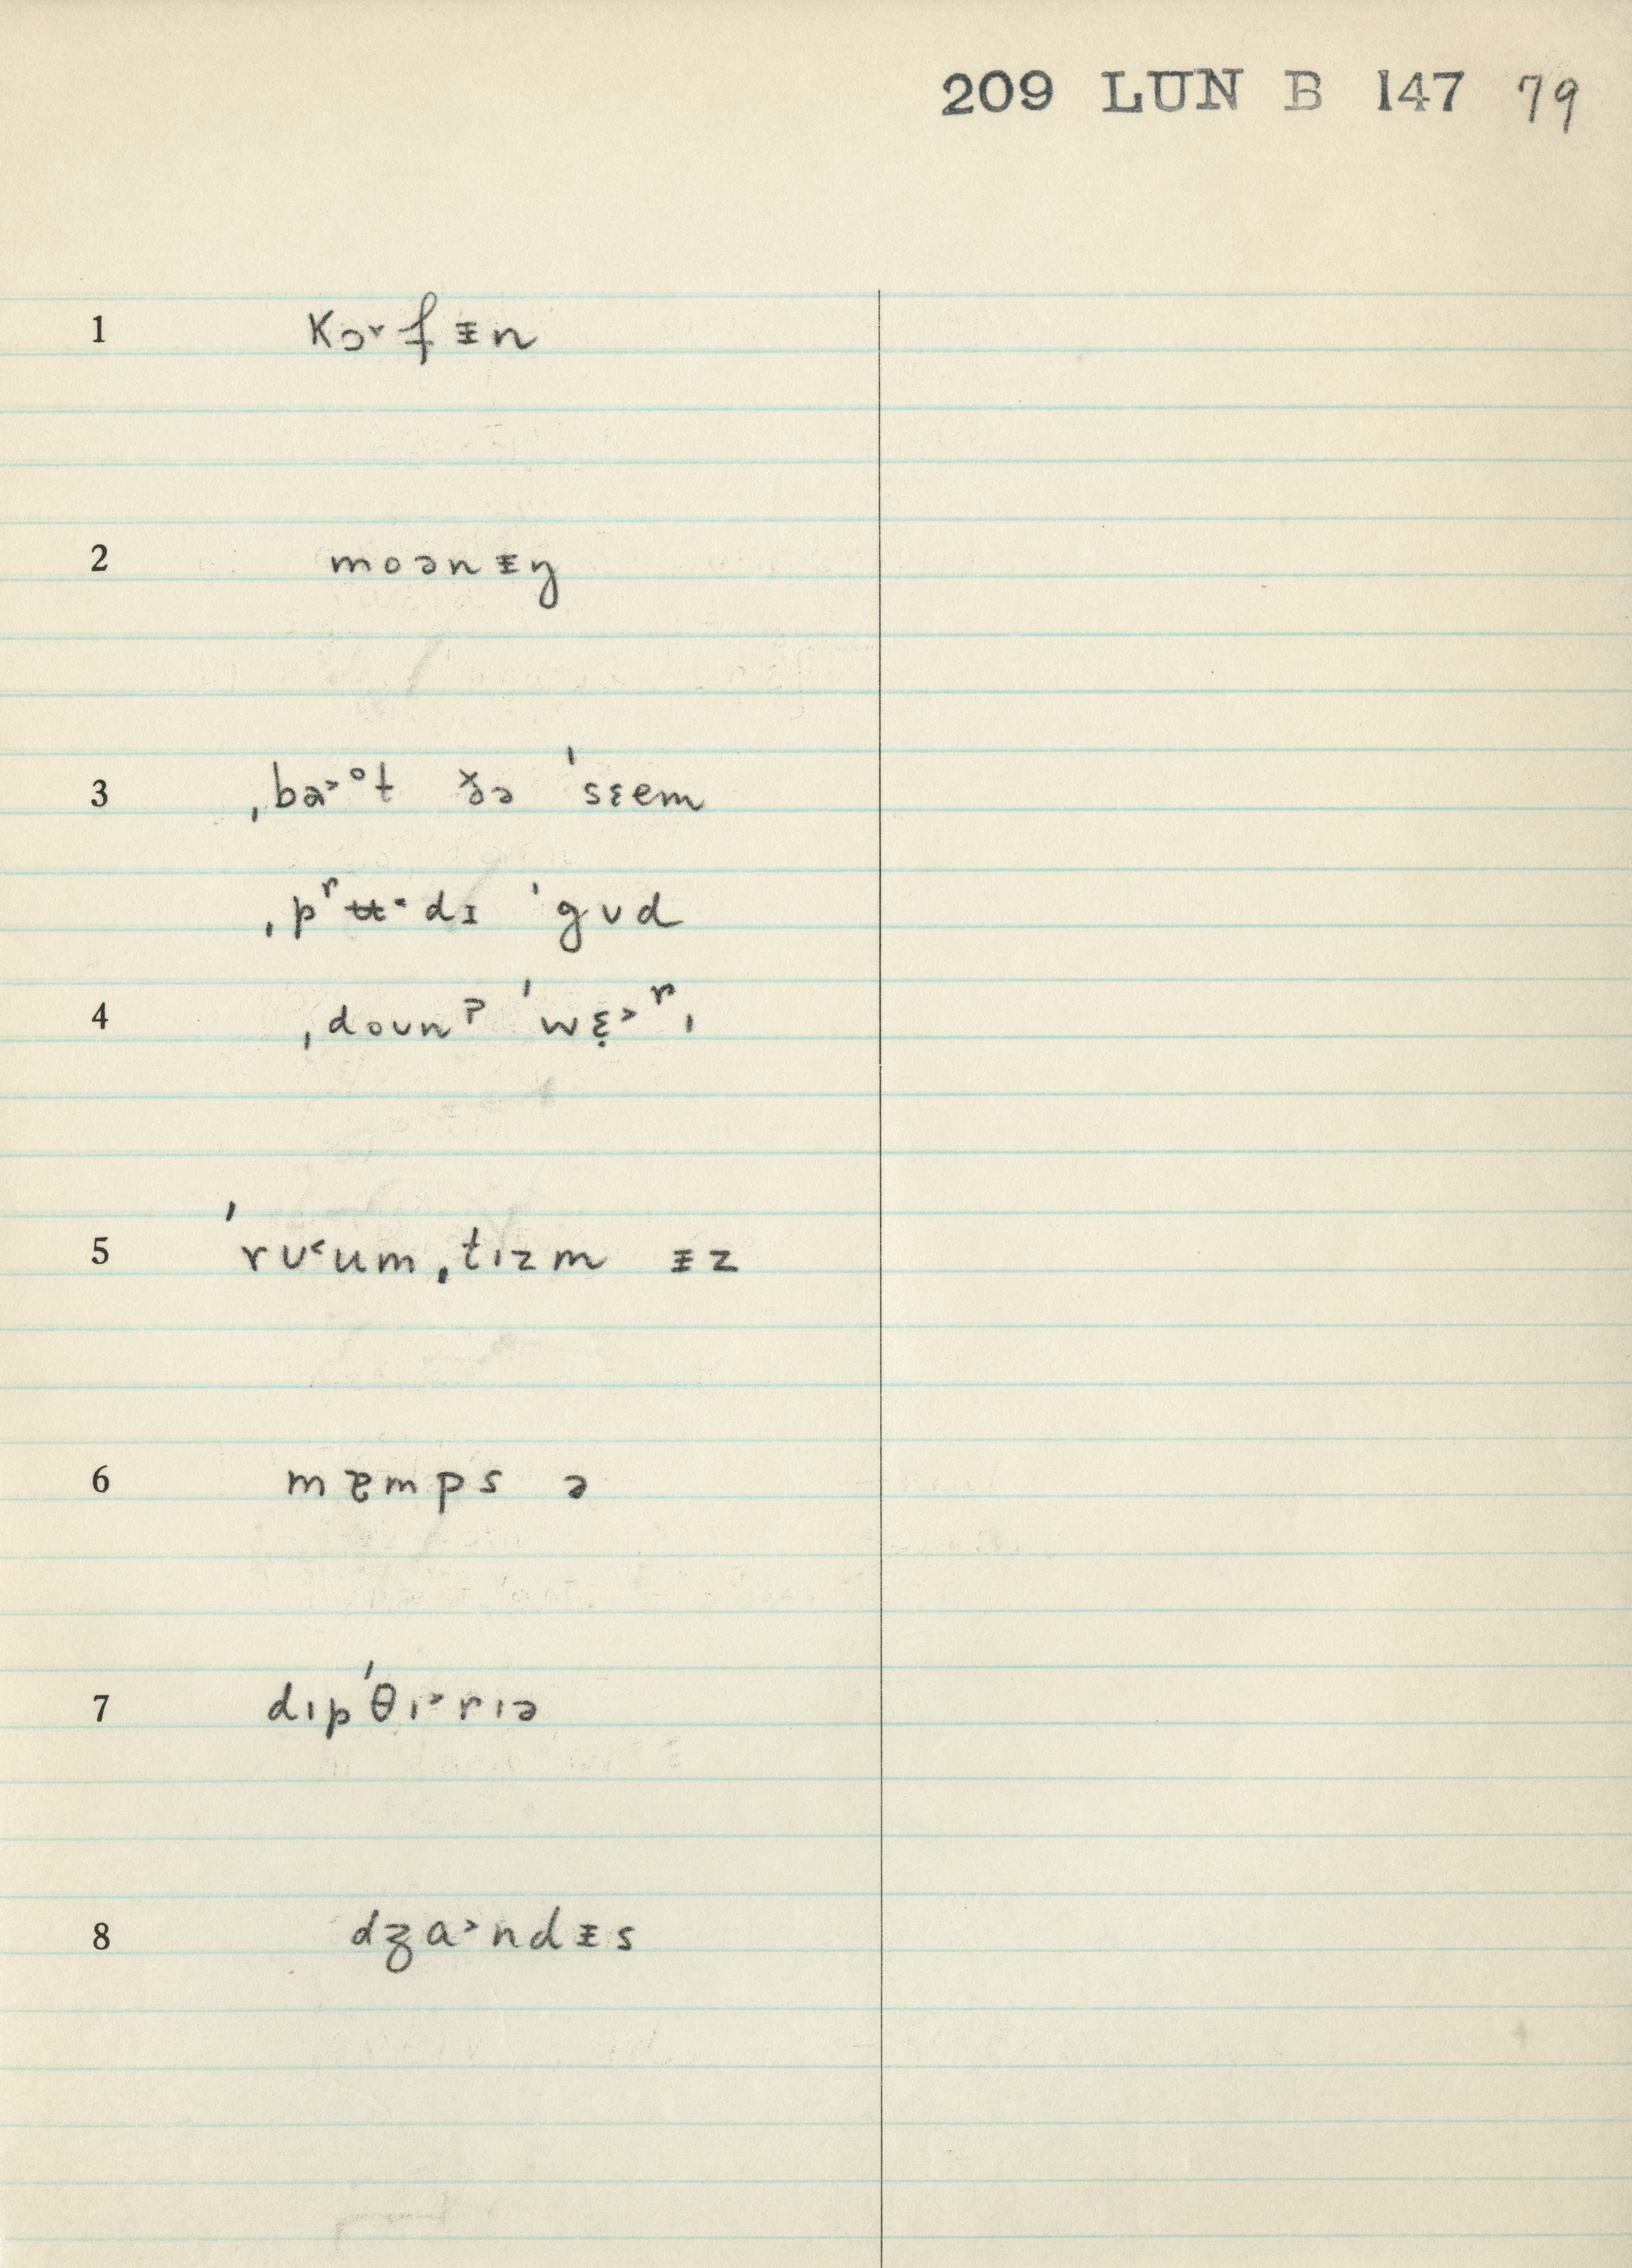 209 LUN B 147 79
1 kɔ˞fᵻn
2 moənᵻŋ
3 ˌbɜ˃ᵒt ðə ˈsɛem
ˌpʳʉ·dɪ ˈgʊd
4 ˌdoʊnˀ ˈwɛ̣˃ʳɪ
5 ˈrʊ˂umˌtɪzm ᵻz
6 mɐmps ə
7 dɪpˈθɪ˃rɪə
8 dʒa˃ndᵻs